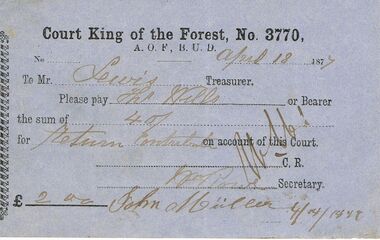 Court King of the Forest, No. 3770,
A. O. F., B. U. D.
No April 18 1877
To Mr. Lewis Treasurer.
Please pay Thos Wills or Bearer
the sum of 40/
for Return on account of this Court.
C. R.
Secretary.
£ 2 00 John Müller